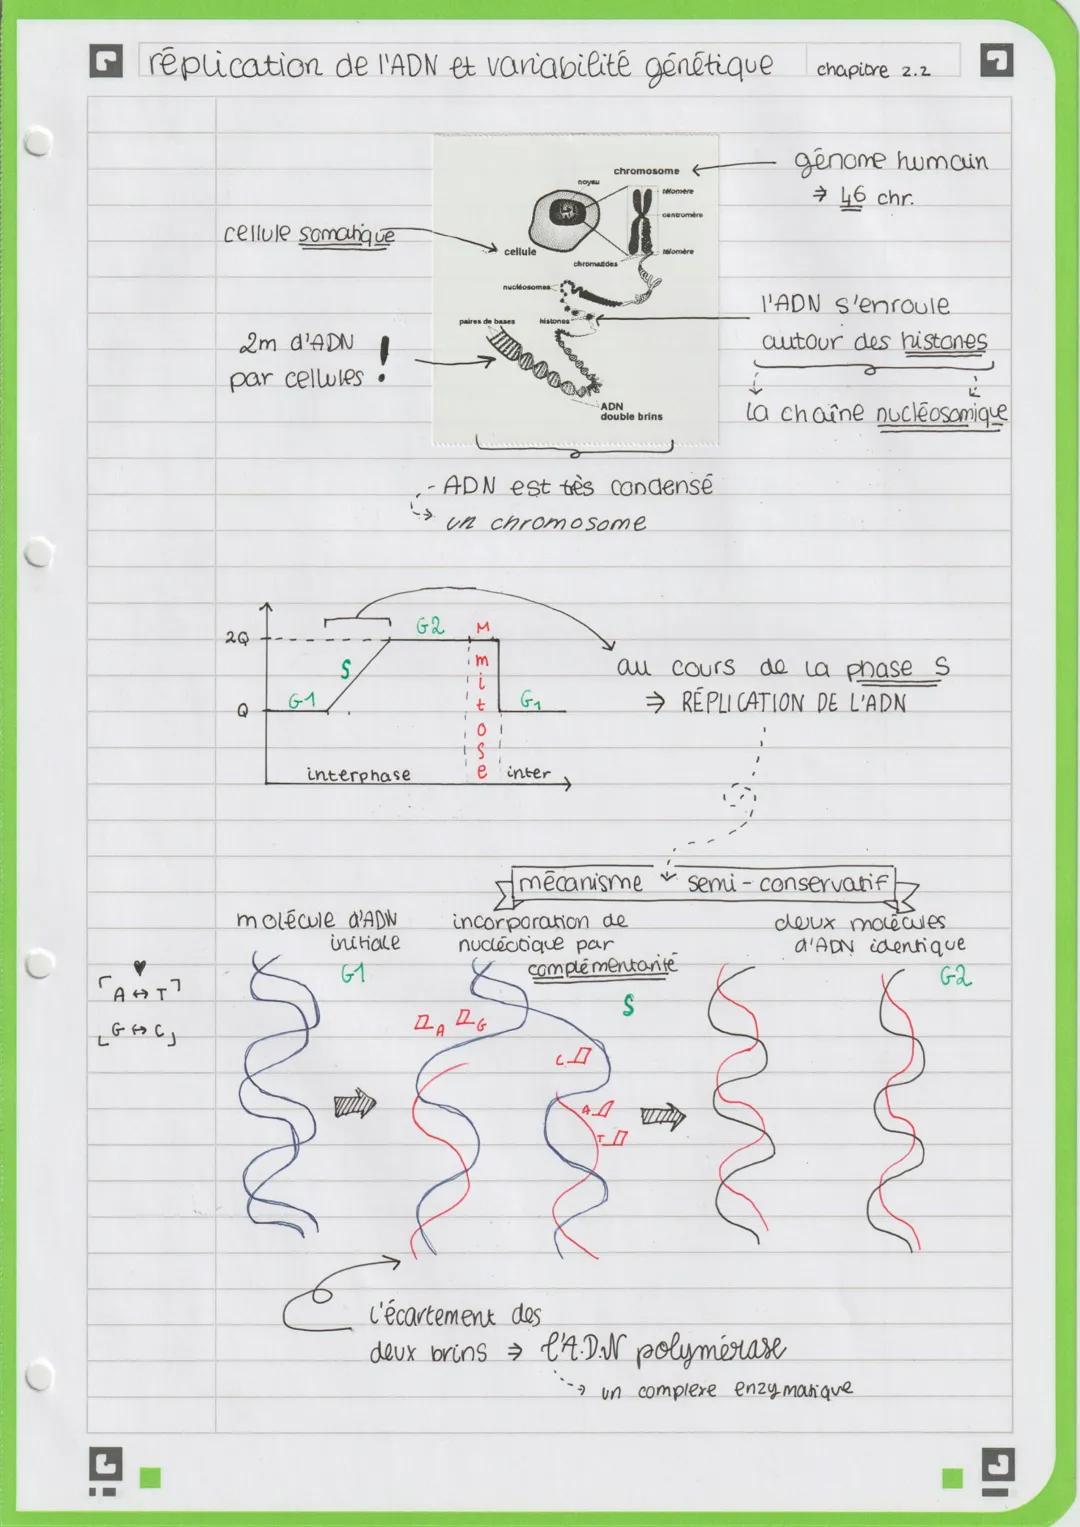 réplication de l'ADN et variabilité génétique
chapitre 2.2
génome humain
⇒ 46 chr.
chromosome
noyau
télomère
centromère
télomère
cellule somatique
cellule
chromatides
nucléosomes
l'ADN s'enroule
autour des histones
paires de bases
histones
2m d'ADN
par cellules !
la chaîne nucléosomique
ADN
double brins
- ADN est très condensé
un chromosome
2Q
Q
G1
S
G2
M
mitose
G1
interphase
inter
au cours de la phase S
⇒ RÉPLICATION DE L'ADN
mécanisme semi-conservatif
molécule d'ADN
initiale
G1
incorporation de
nucléotique par
complémentarité
S
deux molécules
d'ADN identique
G2
A ↔ T
G ↔ C
A
G
C
A
T
l'écartement des
deux brins ⇒ l'A.D.N polymérase
un complexe enzymatique